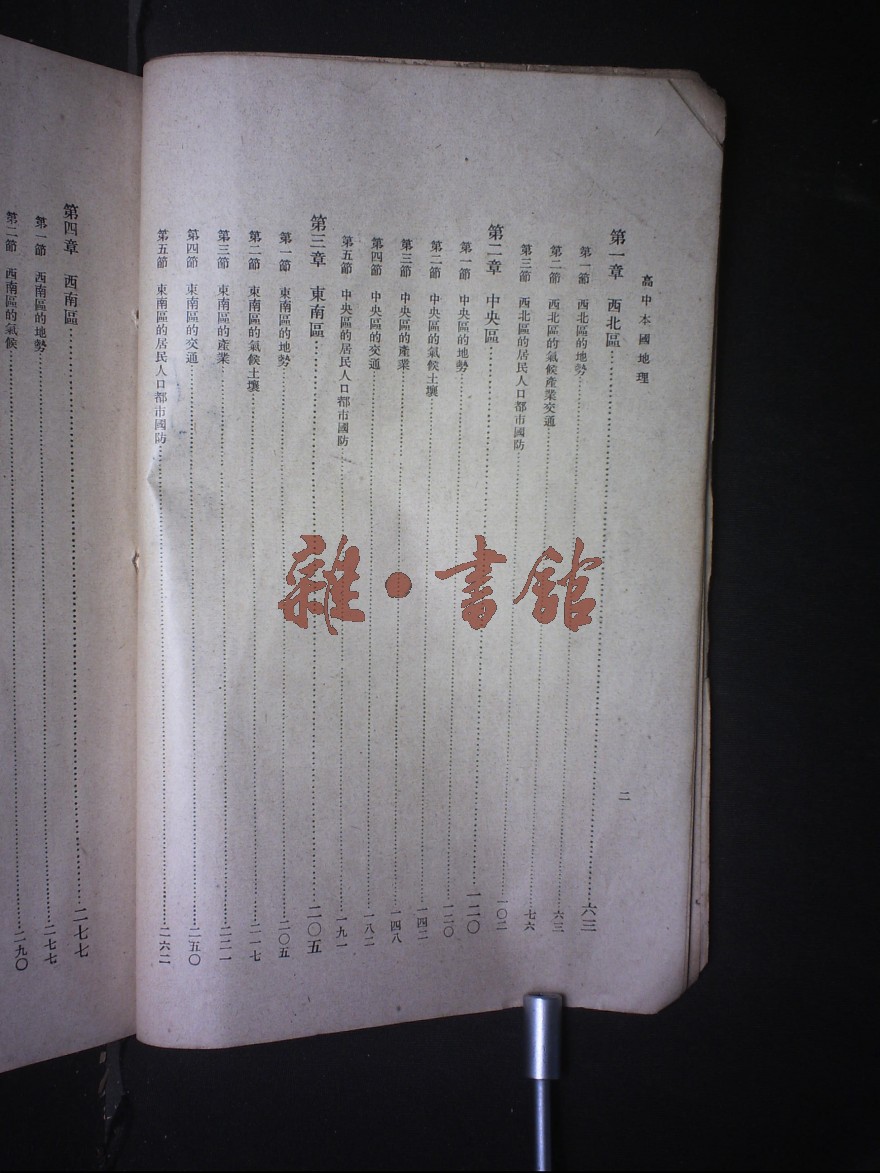 高中本國地理
二
第一章 西北區……六三
第一節 西北區的地勢……六三
第二節 西北區的氣候產業交通……七六
第三節 西北區的居民人口都市國防……一〇二
第二章 中央區……一二〇
第一節 中央區的地勢……一二〇
第二節 中央區的氣候土壤……一四二
第三節 中央區的產業……一四八
第四節 中央區的交通……一八二
第五節 中央區的居民人口都市國防……一九一
第三章 東南區……二〇五
第一節 東南區的地勢……二〇五
第二節 東南區的氣候土壤……二一七
第三節 東南區的產業……二二一
第四節 東南區的交通……二五〇
第五節 東南區的居民人口都市國防……二六二
第四章 西南區……二七七
第一節 西南區的地勢……二七七
第二節 西南區的氣候……二九〇
雜·書館